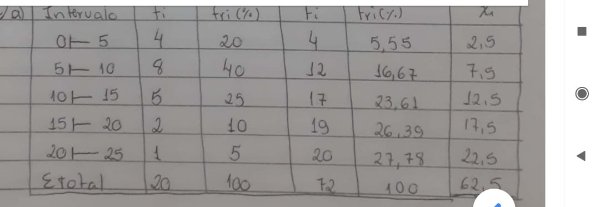 a) Intervalo fi fri(%) Fi Fri(%) xi
0 ⊢ 5 4 20 4 5,55 2,5
5 ⊢ 10 8 40 12 16,67 7,5
10 ⊢ 15 5 25 17 23,61 12,5
15 ⊢ 20 2 10 19 26,39 17,5
20 ⊢ 25 1 5 20 27,78 22,5
Σtotal 20 100 72 100 62,5